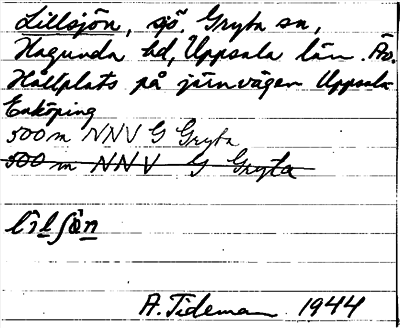 Lillsjön, sjö, Gryta sn,
Hagunda hd, Uppsala län. Äv.
Hållplats på järnvägen Uppsala-
Enköping
500 m NNV G Gryta
500 m NNV G Gryta
A. Tideman 1944